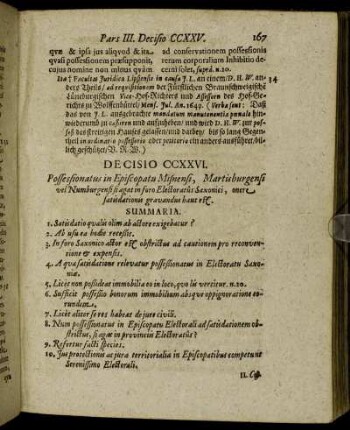 Pars III. Decisio CCXXV. 167
quæ & ipsa jus aliqvod & ita
quasi possessionem præsupponit,
cujus nomine non minus quàm
ad conservationem possessionis
rerum corporalium Inhibitio de-
cerni solet, suprà n. 10.
Ita Facultas Juridica Lipsensis in causa J. L. an einem/ D. H. W. an- 34
ders Theils/ ad requisitionem der Fürstlichen Braunschweigische
Lüneburgischen Vice-Hof-Richters und Assessorn des Hof-Ge-
richts zu Wolffenbüttel/ Mens. Jul. An. 1649. (Verba sunt: Daß
das von J. L. ausgebrachte mandatum manutenentiæ pœnale hin-
wiederumb zu cassiren und aufzuheben/ und wird D. H. W. zur pos-
seß des streitigen Hauses gelassen/ und darbey biß so lang Gegen-
theil in ordinario possessorio oder petitorio ein anders ausführet/ bil-
lich geschützet/ V. R. W.)
DECISIO CCXXVI.
Possessionatus in Episcopatu Misnensi, Martisburgensi
vel Numburgensi si agat in foro Electoratus Saxonici, onere
satisdationis gravandus haut est.
SUMMARIA.
1. Satisdatio qualis olim ab actore exigebatur?
2. Ab usu ea hodie recessit.
3. In foro Saxonico actor est obstrictus ad cautionem pro reconven-
tione & expensis.
4. A qua satisdatione relevatur possessionatus in Electoratu Saxo-
niæ.
5. Licet non possideat immobilia eo in loco, quo lis vertitur. n. 20.
6. Sufficit possessio bonorum immobilium absque oppignoratione eo-
rundem.
7. Licèt aliter se res habeat de jure civili.
8. Num possessionatus in Episcopatu Electorali ad satisdationem ob-
stetictus, si agat in provinciis Electoratus?
9. Refertur facti species.
10. Jus protectionis ac jura territorialia in Episcopatibus competunt
Serenissimo Electorali.
11.